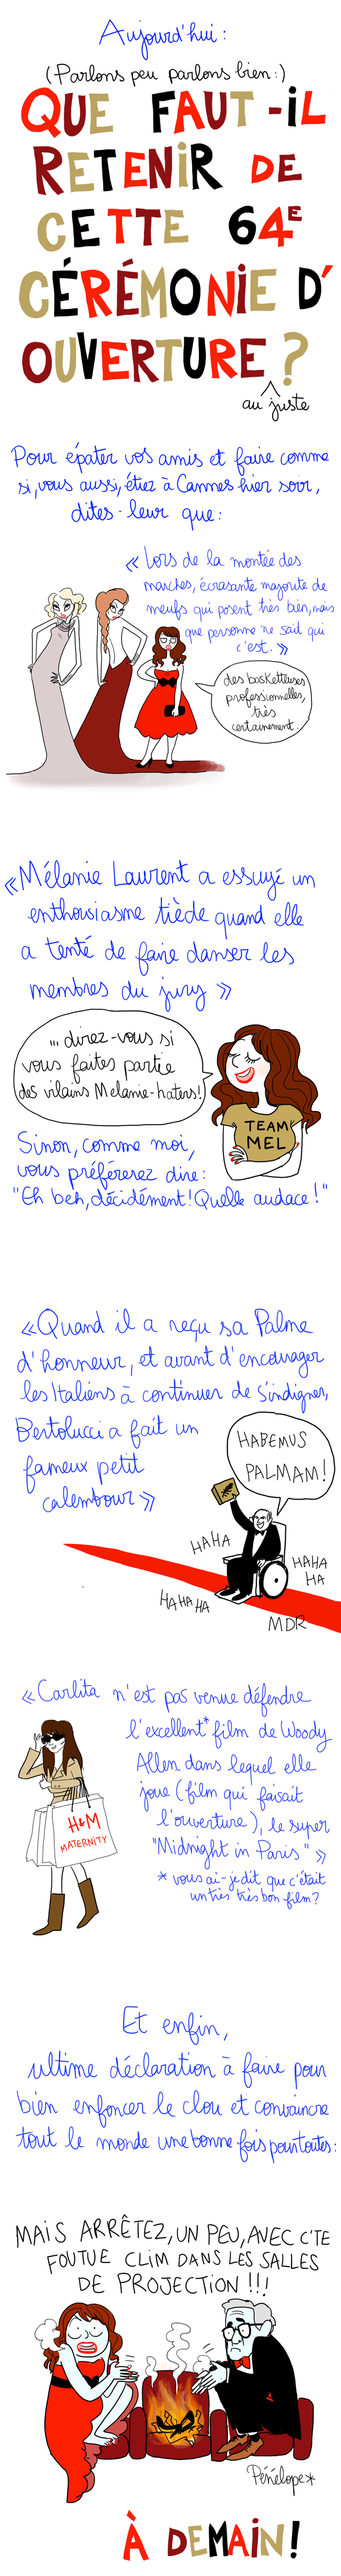 Aujourd'hui :
(Parlons peu parlons bien :)
QUE FAUT-iL
RETENiR DE
CETTE 64E
CÉRÉMONiE D'
OUVERTURE ?
au juste
Pour épater vos amis et faire comme
si, vous aussi, étiez à Cannes hier soir,
dites-leur que :
« Lors de la montée des
marches, écrasante majorité de
meufs qui posent très bien, mais
que personne ne sait qui
c'est. »
des basketteuses
professionnelles,
très
certainement.
« Mélanie Laurent a essuyé un
enthousiasme tiède quand elle
a tenté de faire danser les
membres du jury »
... direz-vous si
vous faites partie
des vilains Mélanie-haters!
TEAM
MEL
Sinon, comme moi,
vous préférerez dire :
"Eh beh, décidément! Quelle audace !"
« Quand il a reçu sa Palme
d'honneur, et avant d'encourager
les Italiens à continuer de s'indigner,
Bertolucci a fait un
fameux petit
calembour »
HABEMUS
PALMAM !
HAHA
HAHA
HA
HAHAHA
MDR
« Carlita n'est pas venue défendre
l'excellent* film de Woody
Allen dans lequel elle
joue (film qui faisait
l'ouverture), le super
"Midnight in Paris" »
* vous ai-je dit que c'était
un très très bon film ?
H&M
MATERNITY
Et enfin,
ultime déclaration à faire pour
bien enfoncer le clou et convaincre
tout le monde une bonne fois pour toutes :
MAIS ARRÊTEZ, UN PEU, AVEC C'TE
FOUTUE CLIM DANS LES SALLES
DE PROJECTION !!!
Pénélope*
À DEMAiN !